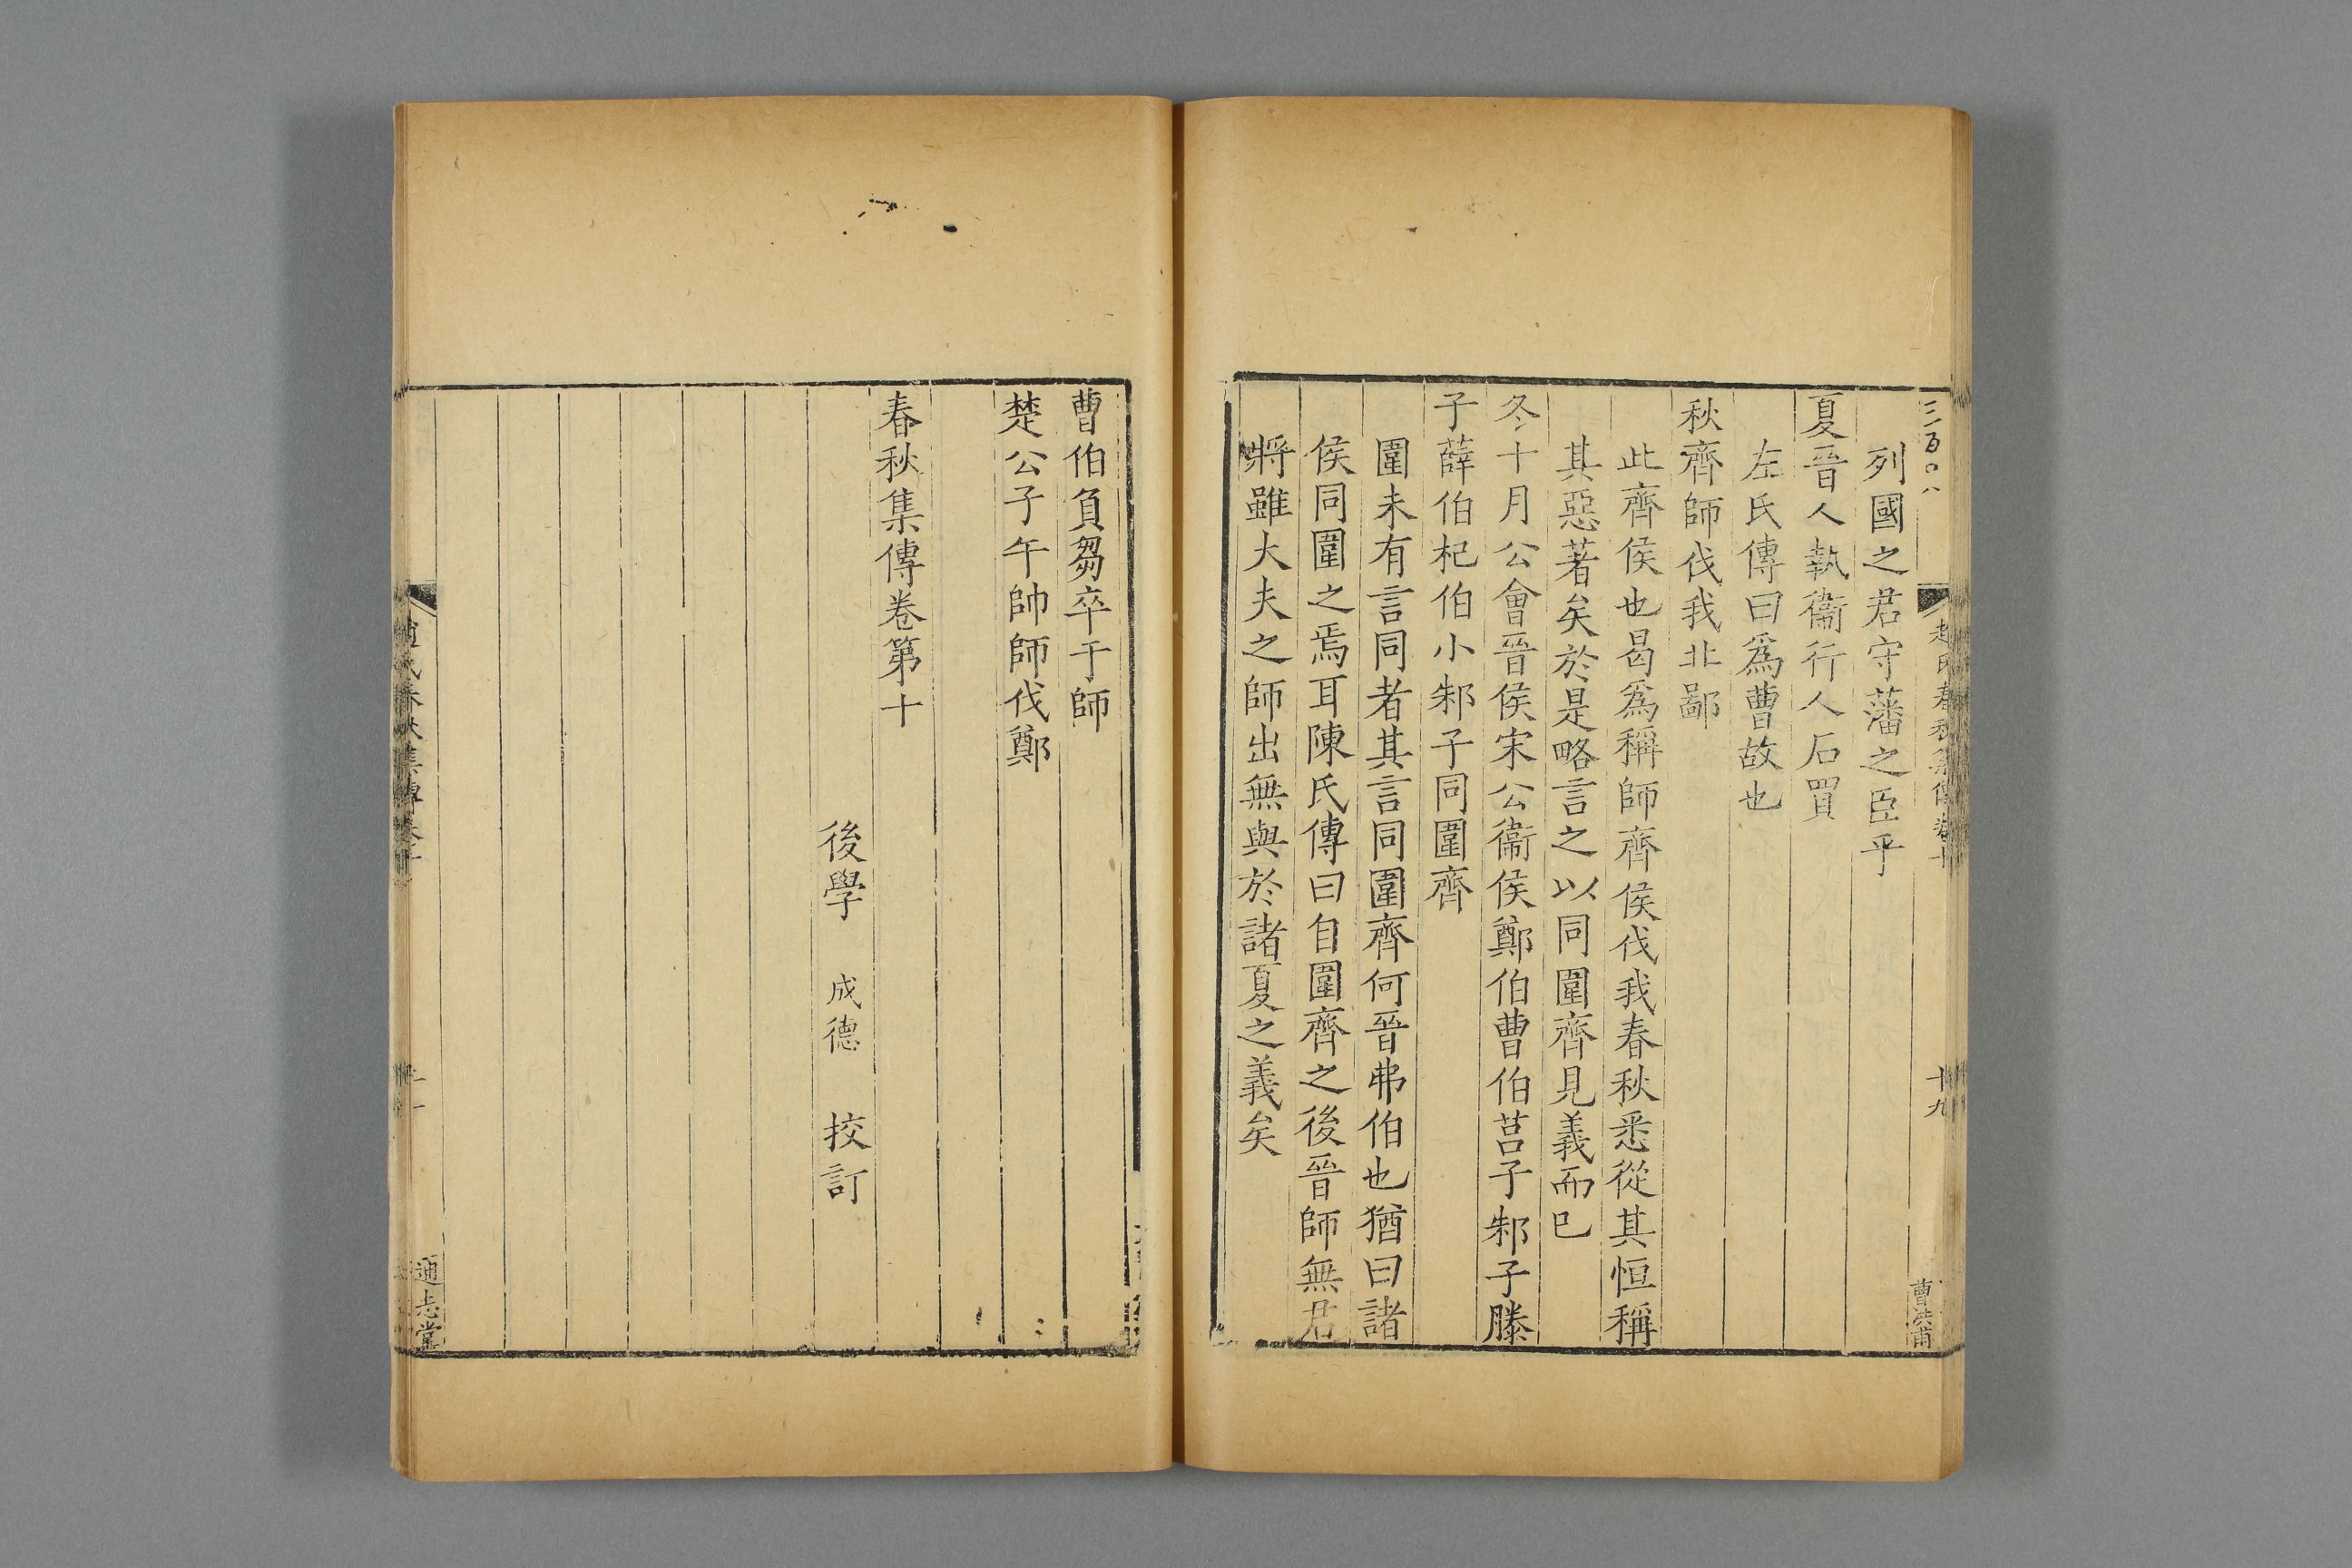 三百〇八
趙氏春秋集傳卷十
十九
曹洪甫
列國之君守藩之臣乎
夏晉人執衞行人石買
左氏傳曰爲曹故也
秋齊師伐我北鄙
此齊侯也曷爲稱師齊侯伐我春秋悉從其恒稱
其惡著矣於是略言之以同圍齊見義而已
冬十月公會晉侯宋公衞侯鄭伯曹伯莒子邾子滕
子薛伯杞伯小邾子同圍齊
圍未有言同者其言同圍齊何晉弗伯也猶曰諸
侯同圍之焉耳陳氏傳曰自圍齊之後晉師無君
將雖大夫之師出無與於諸夏之義矣
曹伯負芻卒于師
楚公子午帥師伐鄭
春秋集傳卷第十
後學 成德 挍訂
趙氏春秋集傳卷十
通志堂